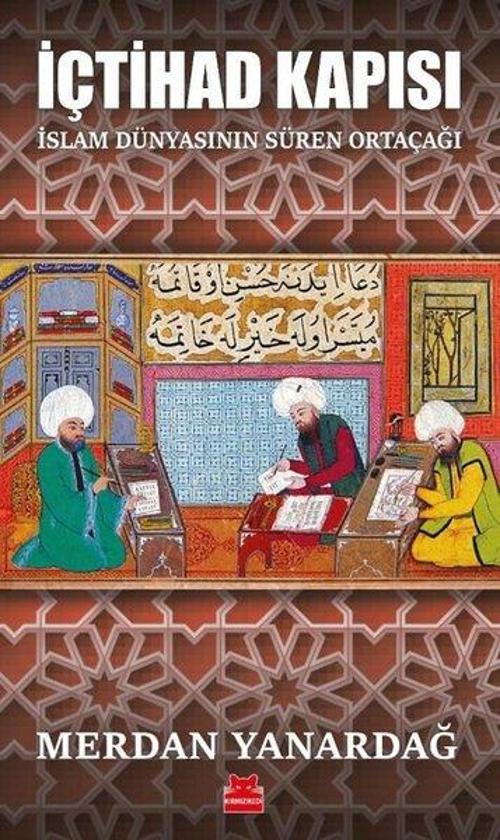 İÇTİHAD KAPISI
İSLAM DÜNYASININ SÜREN ORTAÇAĞI
دعا ایدنه حسن اوقانمه
میسر اوله خیر له خاتمه
MERDAN YANARDAĞ
KIRMIZIKEDİ